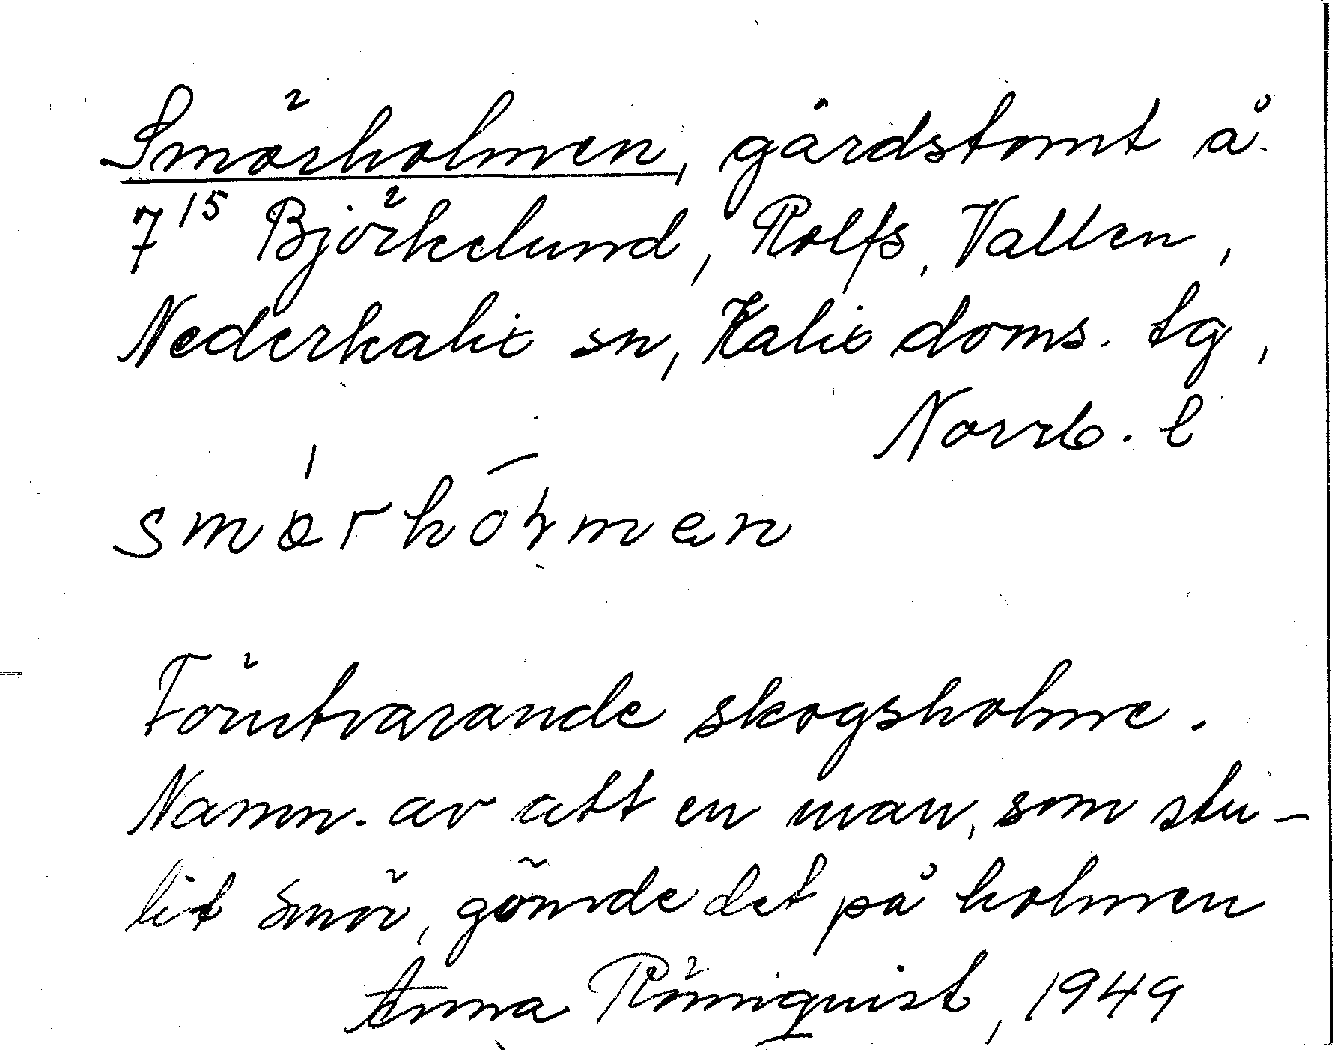 Smörholmen, gårdstomt å
7¹⁵ Björkelund, Rolfs, Vallen,
Nederkalix sn, Kalix doms. tg,
Norrb. l
Förutvarande skogsholme.
Namn. av att en man, som stu-
lit smör, gömde det på holmen
Anna Rönnquist, 1949